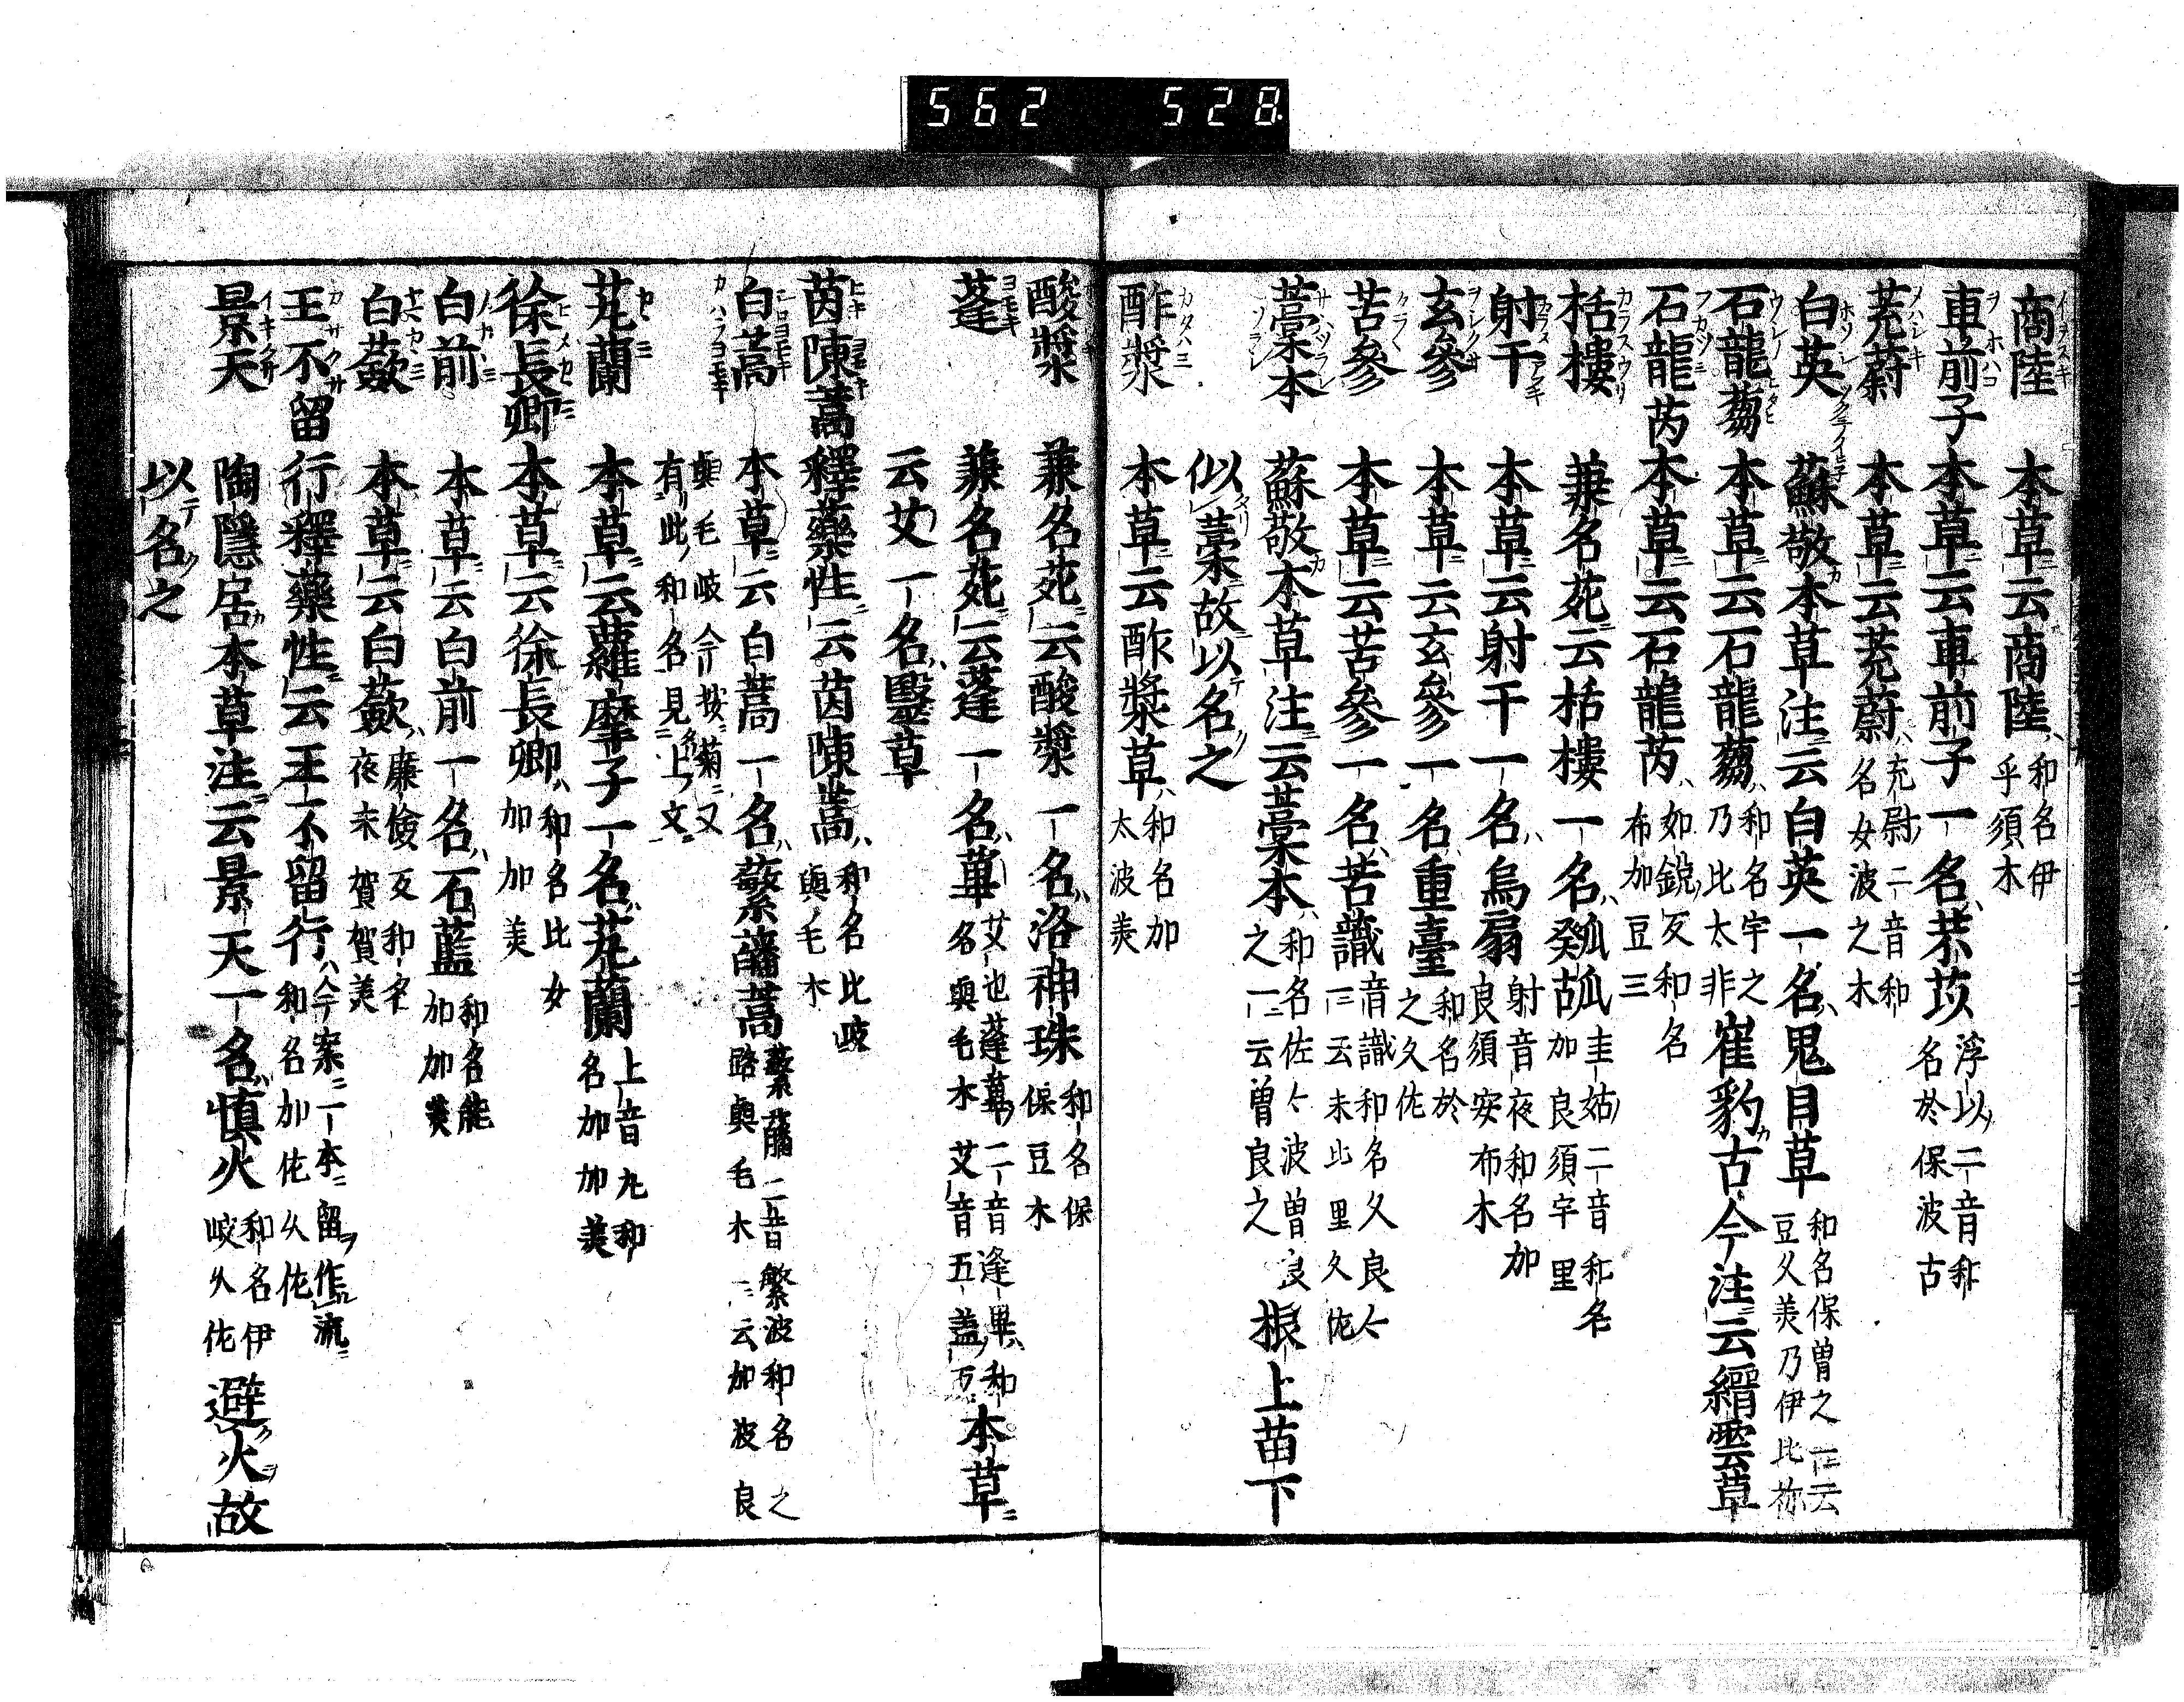 562 528
商陸 本草云商陸 和名伊乎須木
車前子 本草云車前子一名芣苡 浮以二音和名於保波古
茺蔚 本草云茺蔚 充尉二音和名女波之木
白英 蘇敬本草注云白英一名鬼目草 和名保曽之一云豆久美乃伊比祢
石龍蒭 本草云石龍蒭 和名宇之乃比太非 崔豹古今注云縉雲草
石龍芮 本草云石龍芮 如鋭反和名布加豆三
栝樓 兼名苑云栝樓一名 圭姑二音和名加良須宇里
射干 本草云射干一名烏扇 射音夜和名加良須安布木
玄參 本草云玄參一名重臺 和名於之久佐
苦參 本草云苦參一名苦識 音識和名久良々一云末比里久佐
藁本 蘇敬本草注云藁本 和名佐々波曽良之一云曽良之 根上苗下
似藁故以名之
酢漿 本草云酢漿草 和名加太波美
酸漿 兼名苑云酸漿一名洛神珠 和名保保豆木
蓬 兼名苑云蓬一名蓽 艾也蓬蓽二音逢畢和名與毛木艾音五蓋反 本草
云艾一名醫草
茵陳蒿 釋藥性云茵陳蒿 和名比岐與毛木
白蒿 本草云白蒿一名蘩皤蒿 二音繁波和名之路與毛木一云加波良
與毛岐今按菊又有此和名見上文
芄蘭 本草云蘿摩子一名芄蘭 上音丸和名加加美
徐長卿 本草云徐長卿 和名比女加加美
白前 本草云白前一名石藍 和名能加加美
白蘞 本草云白蘞 廉儉反和名夜末賀賀美
王不留行 釋藥性云王不留行 今案一本留作流和名加佐久佐
景天 陶隱居本草注云景天一名慎火 和名伊岐久佐 避火故
以名之